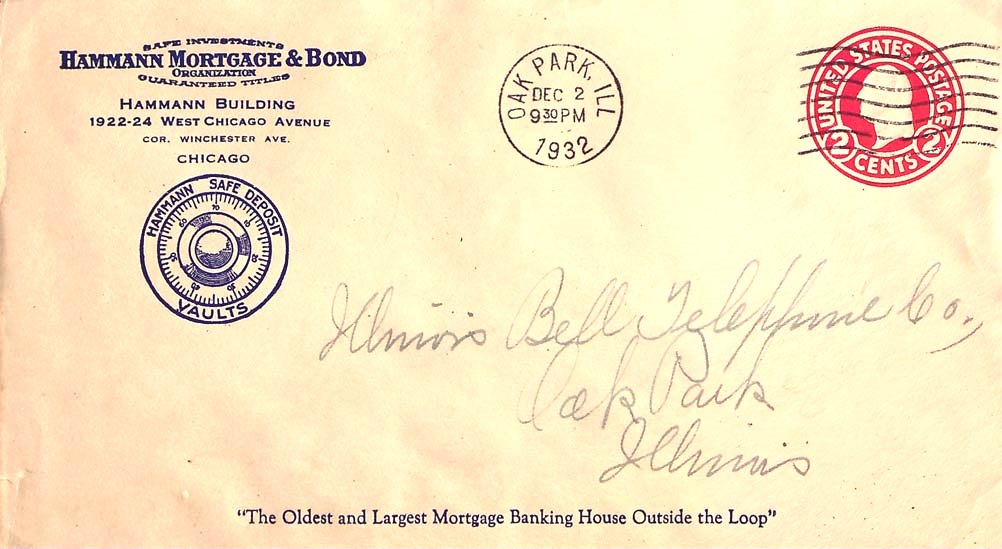 SAFE INVESTMENTS
HAMMANN MORTGAGE & BOND
ORGANIZATION
GUARANTEED TITLES
HAMMANN BUILDING
1922-24 WEST CHICAGO AVENUE
COR. WINCHESTER AVE.
CHICAGO
HAMMANN SAFE DEPOSIT
VAULTS
OAK PARK, ILL
DEC 2
9 30 PM
1932
UNITED STATES POSTAGE
2 CENTS 2
Illinois Bell Telephone Co.,
Oak Park
Illinois
"The Oldest and Largest Mortgage Banking House Outside the Loop"